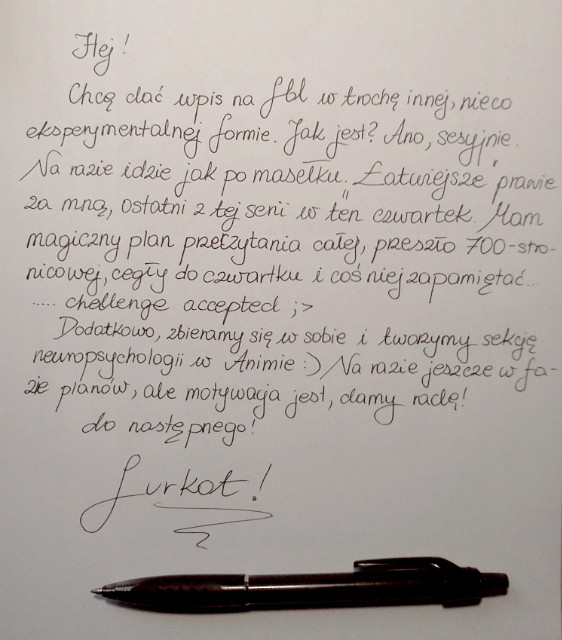 Hej!
Chcę dać wpis na fbl w trochę innej, nieco
eksperymentalnej formie. Jak jest? Ano, sesyjnie.
Na razie idzie jak po masełku. Łatwiejsze "prawie"
za mną, ostatni z tej serii w ten czwartek. Mam
magiczny plan przeczytania całej, przeszło 700-stro-
nicowej, cegły do czwartku i coś niej zapamiętać...
..... challenge accepted ;>
Dodatkowo, zbieramy się w sobie i tworzymy sekcję
neuropsychologii w Animie :) Na razie jeszcze w fa-
zie planów, ale motywacja jest, damy radę!
do następnego!
Lurkot!